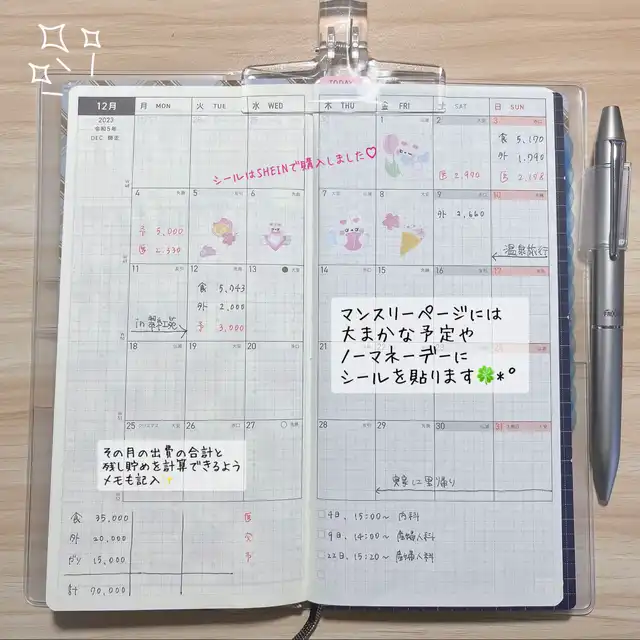 TODAY
12月
月 MON
火 TUE
水 WED
木 THU
金 FRI
土 SAT
日 SUN
2023
令和5年
DEC
シールはSHEINで購入しました♡
1
2
3
医 2,970
食 5,170
外 1,790
医 2,178
4
5
6
7
8
9
10
予 5,000
医 2,330
外 2,660
温泉旅行
11
12
13
14
15
16
17
食 5,943
外 2,000
予 3,000
マンスリーページには
大まかな予定や
ノーマネーデーに
シールを貼ります🍀*°
18
19
20
21
22
25 クリスマス
26
27
28
29
30
31
その月の出費の合計と
残し貯めを計算できるよう
メモも記入
実家に里帰り
食 35,000
外 20,000
だり 15,000
計 70,000
医
予
4日、15:00〜 内科
9日、14:00〜 産婦人科
22日、15:20〜 産婦人科